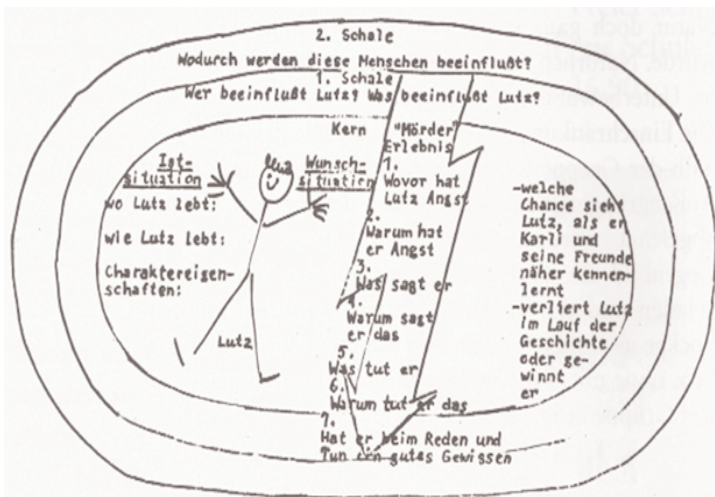 2. Schale
Wodurch werden diese Menschen beeinflußt?
1. Schale
Wer beeinflußt Lutz? Was beeinflußt Lutz?
Kern
"Mörder"
Erlebnis
Ist-
situation
Wunsch-
situation
wo Lutz lebt:
wie Lutz lebt:
Charaktereigen-
schaften:
Lutz
1.
Wovor hat
Lutz Angst
2.
Warum hat
er Angst
3.
Was sagt er
4.
Warum sagt
er das
5.
Was tut er
6.
Warum tut er das
7.
Hat er beim Reden und
Tun ein gutes Gewissen
-welche
Chance sieht
Lutz, als er
Karli und
seine Freunde
näher kennen-
lernt
-verliert Lutz
im Lauf der
Geschichte
oder ge-
winnt
er